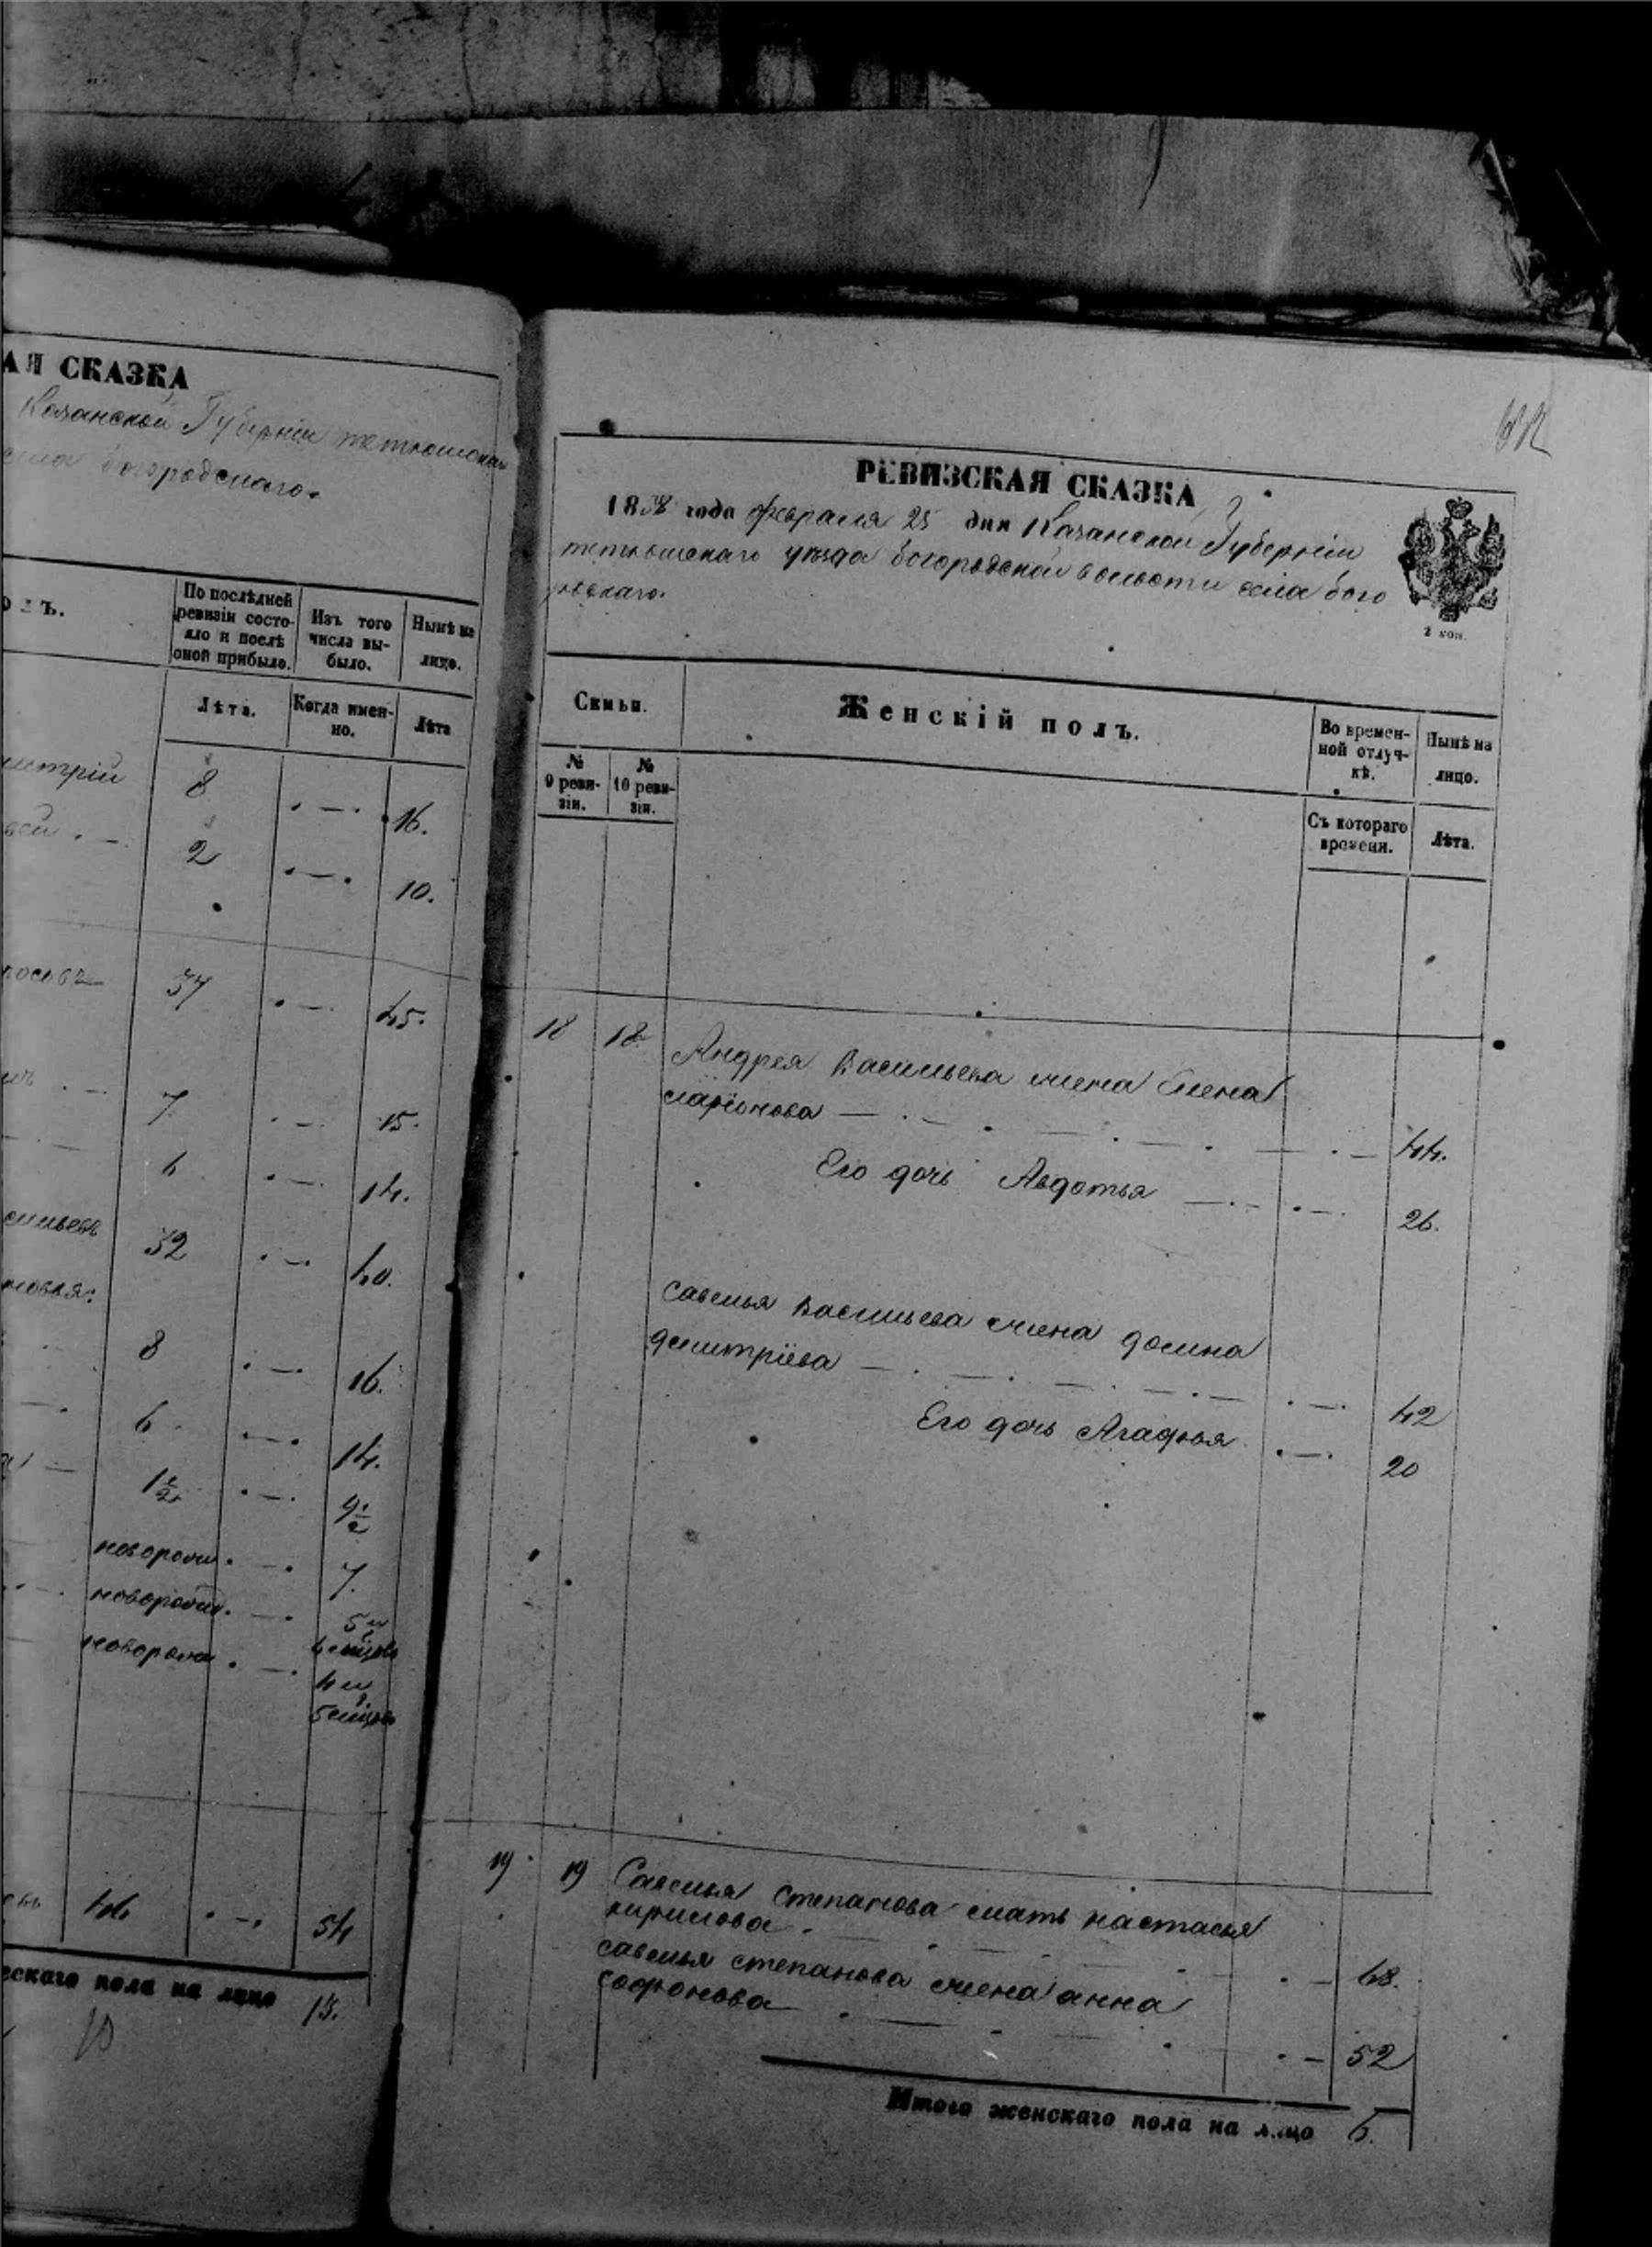 АЯ СКАЗКА
Казанской Губернiи тетюшска
села богородскаго.
По послѣдней ревизіи состояло и послѣ оной прибыло.
Изъ того числа выбыло.
Нынѣ на лицо.
Лѣта.
Когда именно.
Лѣта
митрій 8 16.
2 10.
37 45.
7 15.
6 14.
32 40.
8 16.
6 14.
1½ 9½
новорожд. 7.
новорожд. 5 и
6 мцовъ
новорожд 4 и
5 мцовъ
46 54
ескаго пола на лицо 15.
РЕВИЗСКАЯ СКАЗКА
1858 года февраля 25 дня Казанской Губерніи
тетюшскаго уѣзда богородской волости села бого
Семьи.
Женскій полъ.
Во временной отлучкѣ.
Нынѣ на лицо.
№ 9 ревизіи.
№ 10 ревизіи.
Съ котораго времени.
Лѣта.
18 18 Андрея Васильева жена Елена
ларіонова 44.
Его дочь Авдотья 26.
савелья Васильева жена домна
дмитріева 42
Его дочь Агафья 20
19 19 Савелья Степанова мать настасья
кирилова 68.
савелья степанова жена анна
софронова 52
Итого женскаго пола на лицо 6.
2 коп.